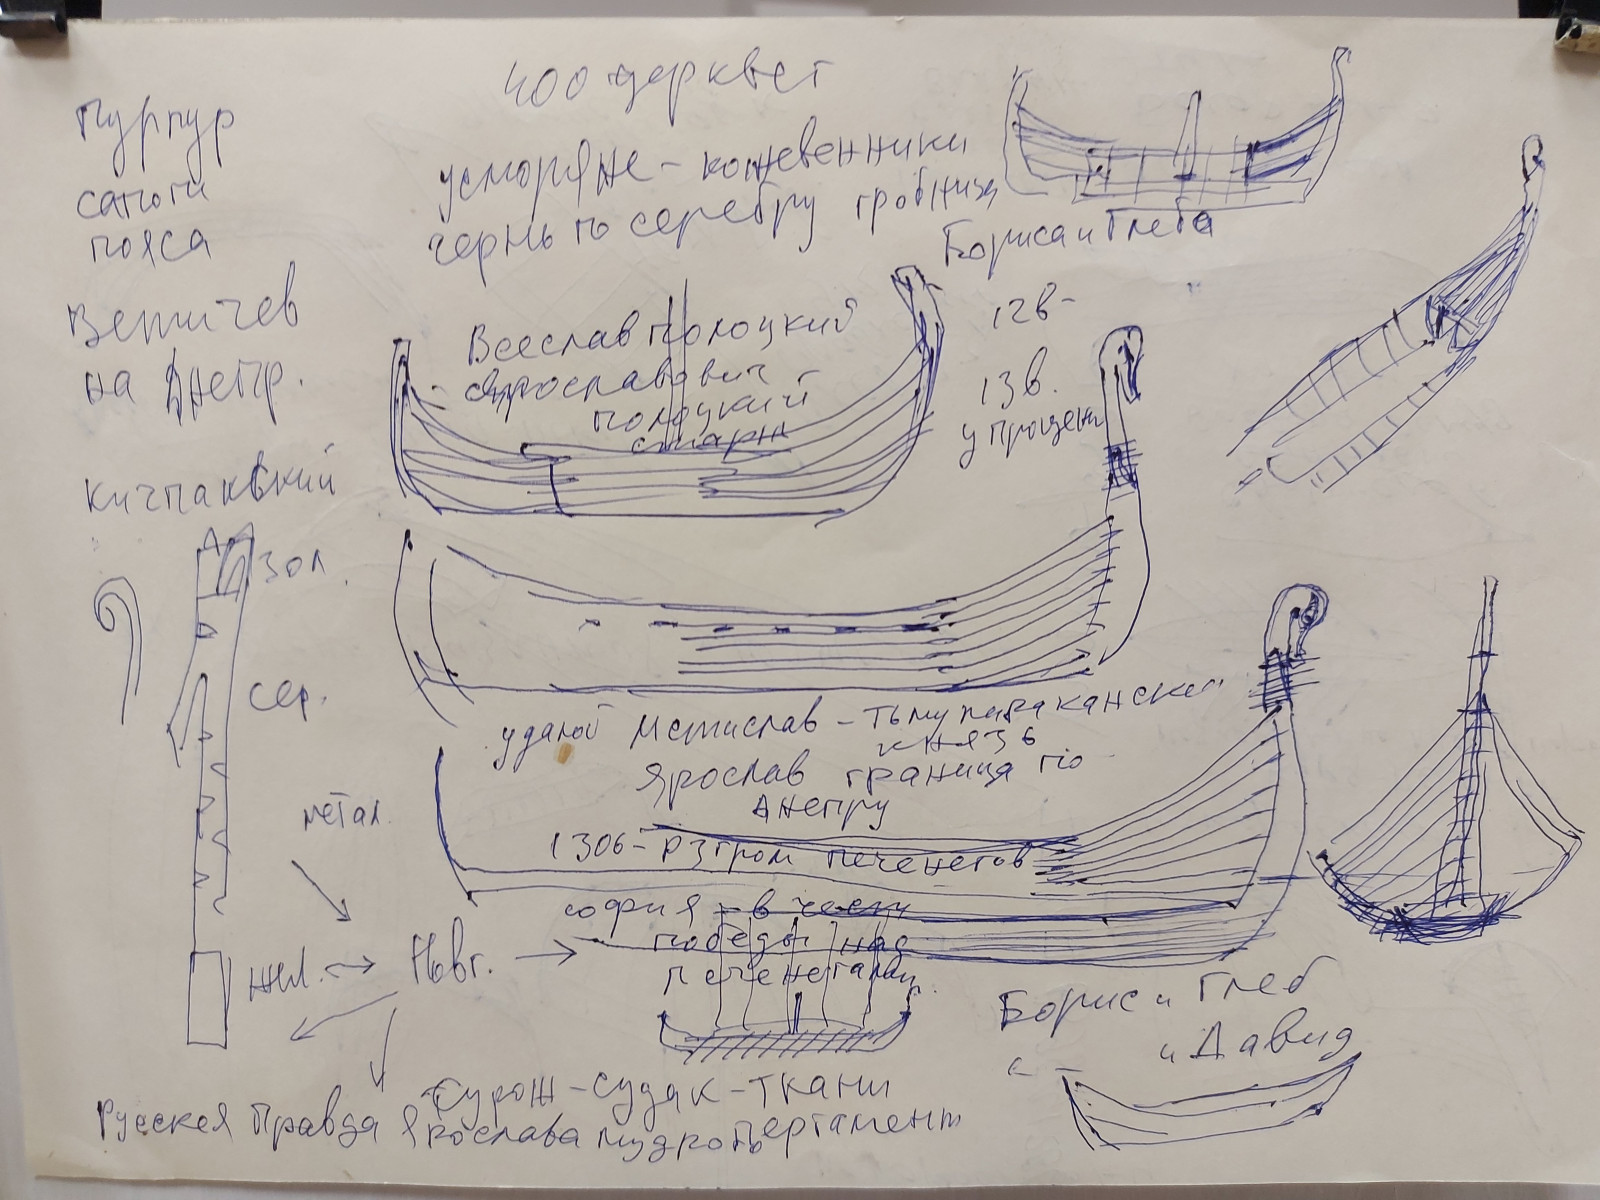 400 церквет
Пурпур
сапоги
пояса
усморяне - кожевенники
чернь по серебру гробница
Бориса и Глеба
Ветичев
на Днепр.
Всеслав Полоцкий
полоцкий
12в-
13в.
у
Кичпаквкий
Зол.
Сер.
метал.
удалой Мстислав - Тьмутараканский
князь
Ярослав граница по
Днепру
1306 - рзгром печенегов
София - в чести
победы над
печенегами
жл. → Новг. →
Борис и Глеб
и Давид
Сурож - судак - ткани
Русская Правда Ярослава мудрого пергамент